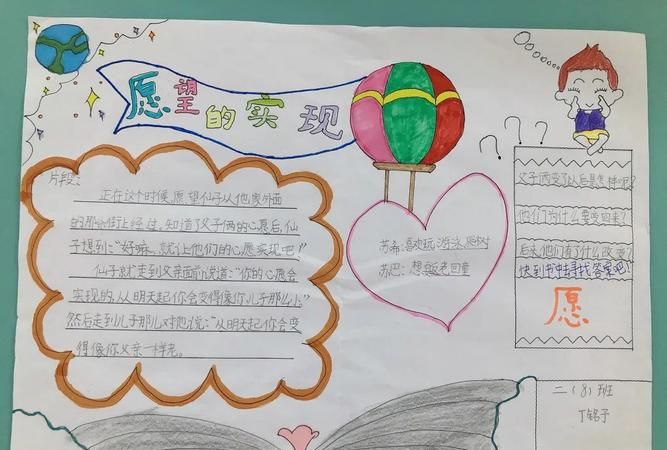 愿望的实现
片段:
正在这个时候,愿望仙子从他家外面
的那条街上经过,知道了父子俩的心愿后,仙
子想到:“好嘛,就让他们的心愿实现吧!”
仙子就走到父亲面前说道:“你的心愿会
实现的,从明天起你会变得像你儿子那么小。”
然后走到儿子那儿对他说:“从明天起你会变
得像你父亲一样老。
苏希:喜欢玩游泳爬树
苏巴:想返老回童
? ? ?
父子俩变了以后是怎样呢?
他们为什么要变回来?
后来他们有了什么改变?
快到书中去寻找答案吧!
愿
二(8)班
丁铭予